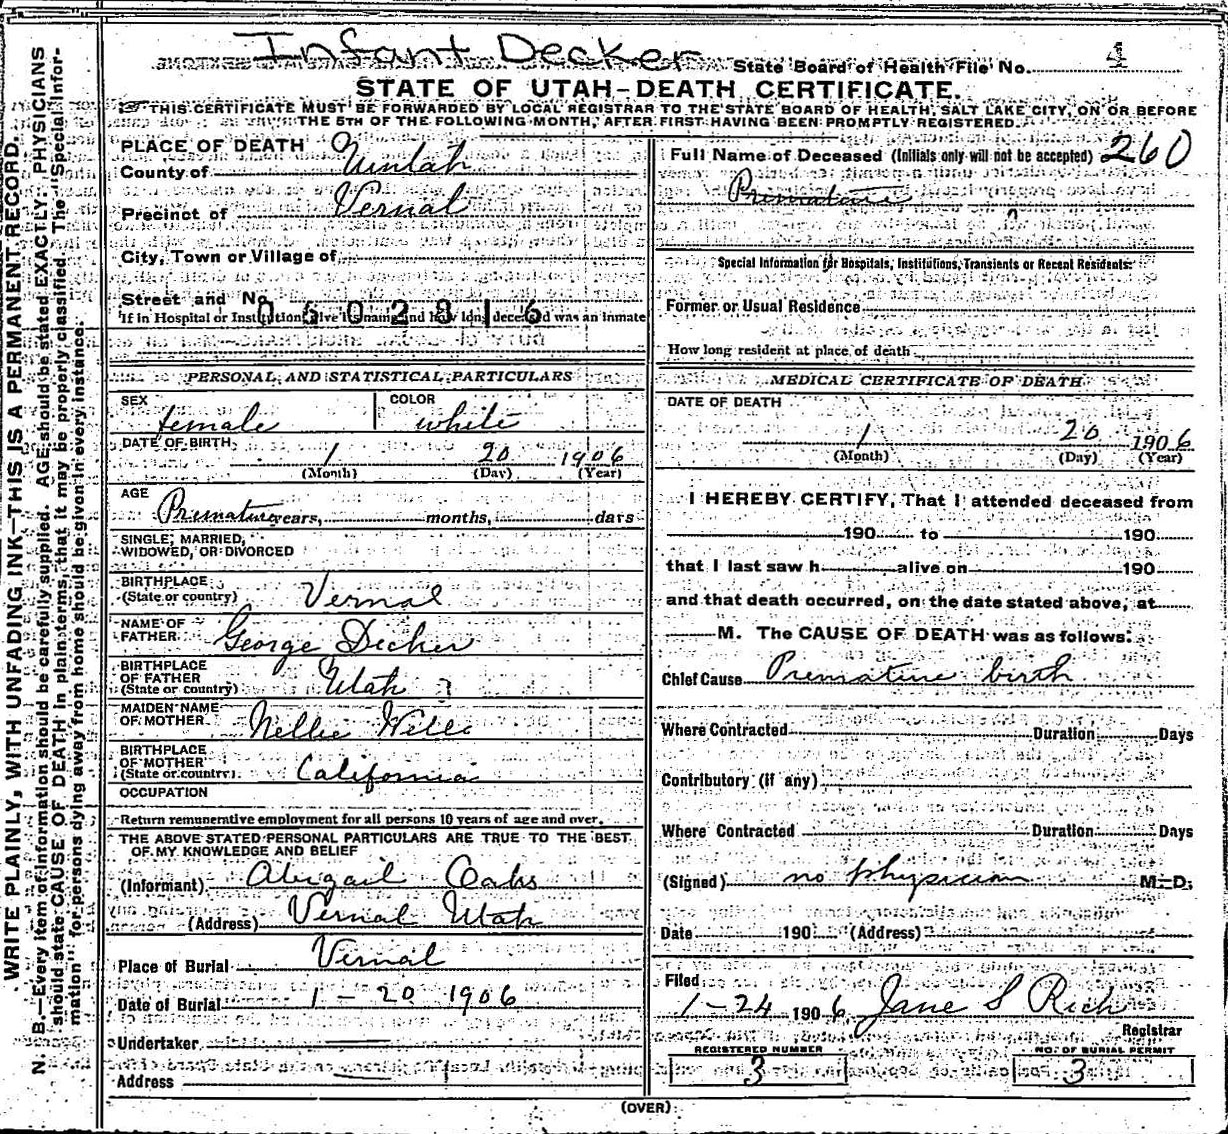 Infant Decker
State Board of Health File No. 4
STATE OF UTAH—DEATH CERTIFICATE.
THIS CERTIFICATE MUST BE FORWARDED BY LOCAL REGISTRAR TO THE STATE BOARD OF HEALTH, SALT LAKE CITY, ON OR BEFORE
THE 5TH OF THE FOLLOWING MONTH, AFTER FIRST HAVING BEEN PROMPTLY REGISTERED.
WRITE PLAINLY, WITH UNFADING INK—THIS IS A PERMANENT RECORD.
N. B.—Every item of information should be carefully supplied. AGE should be stated EXACTLY. PHYSICIANS
should state CAUSE OF DEATH in plain terms, that it may be properly classified. The "Special Infor-
mation" for persons dying away from home should be given in every instance.
PLACE OF DEATH
County of Uintah
Precinct of Vernal
City, Town or Village of
Street and No.
0602816
If in Hospital or Institution give its name and how long deceased was an inmate
PERSONAL AND STATISTICAL PARTICULARS
SEX female COLOR white
DATE OF BIRTH 1 20 1906
(Month) (Day) (Year)
AGE Premature years, months, days
SINGLE, MARRIED,
WIDOWED, OR DIVORCED
BIRTHPLACE
(State or country) Vernal
NAME OF
FATHER George Decker
BIRTHPLACE
OF FATHER
(State or country) Utah ?
MAIDEN NAME
OF MOTHER Nellie Wills
BIRTHPLACE
OF MOTHER
(State or country) California
OCCUPATION
Return remunerative employment for all persons 10 years of age and over.
THE ABOVE STATED PERSONAL PARTICULARS ARE TRUE TO THE BEST
OF MY KNOWLEDGE AND BELIEF
(Informant) Abigail Oaks
(Address) Vernal Utah
Place of Burial Vernal
Date of Burial 1 - 20 1906
Undertaker
Address
Full Name of Deceased (Initials only will not be accepted) 260
Premature
Special Information for Hospitals, Institutions, Transients or Recent Residents:
Former or Usual Residence
How long resident at place of death
MEDICAL CERTIFICATE OF DEATH
DATE OF DEATH
1 20 1906
(Month) (Day) (Year)
I HEREBY CERTIFY, That I attended deceased from
190 to 190
that I last saw h alive on 190
and that death occurred, on the date stated above, at
M. The CAUSE OF DEATH was as follows:
Chief Cause Premature birth
Where Contracted Duration Days
Contributory (if any)
Where Contracted Duration Days
(Signed) no physician M. D.
Date 190 (Address)
Filed
1-24 1906 Jane S Rich
Registrar
REGISTERED NUMBER NO. OF BURIAL PERMIT
3 3
(OVER)